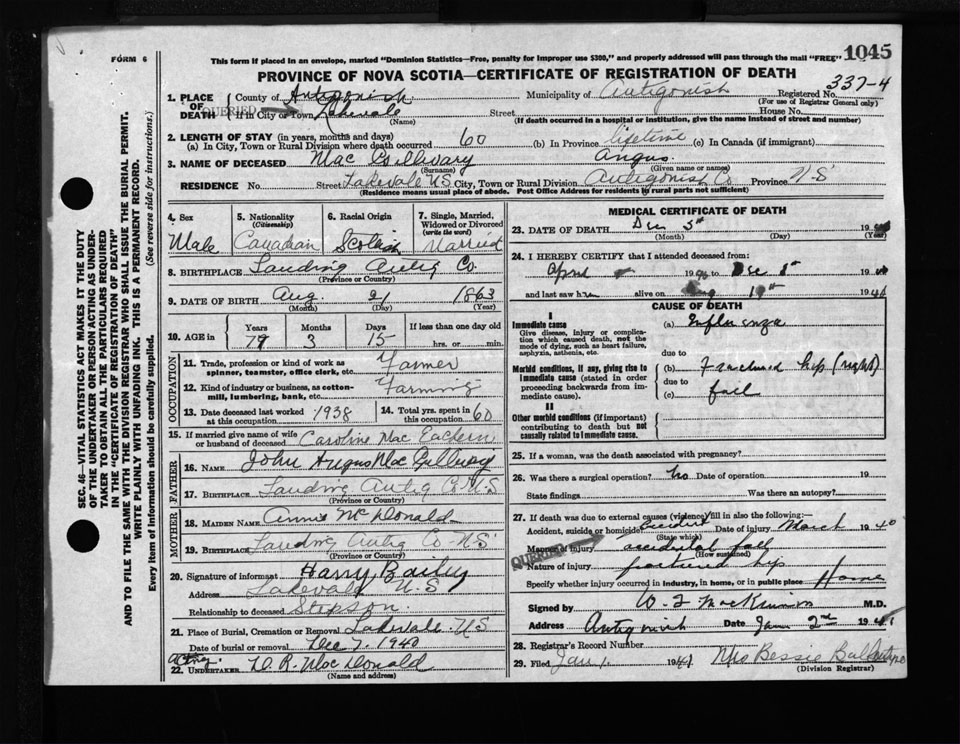 1045
FORM 6
This form if placed in an envelope, marked "Dominion Statistics—Free, penalty for improper use $300," and properly addressed will pass through the mail "FREE"
PROVINCE OF NOVA SCOTIA—CERTIFICATE OF REGISTRATION OF DEATH
337-4
1. PLACE OF DEATH County of Antigonish Municipality of Antigonish Registered No.
(For use of Registrar General only)
QUERIED
If in City or Town Lakevale Street House No.
(Name) (If death occurred in a hospital or institution, give the name instead of street and number)
2. LENGTH OF STAY (in years, months and days)
(a) In City, Town or Rural Division where death occurred 60 (b) In Province lifetime (c) In Canada (if immigrant)
3. NAME OF DECEASED Mac Gillivary Angus
(Surname) (Given name or names)
RESIDENCE No. Street Lakevale N S City, Town or Rural Division Antigonish Co Province N-S
(Residence means usual place of abode. Post Office Address for residents in rural parts not sufficient)
4. Sex 5. Nationality (Citizenship) 6. Racial Origin 7. Single, Married, Widowed or Divorced (write the word)
Male Canadian Scotish Married
8. BIRTHPLACE Landing Antig Co
(Province or Country)
9. DATE OF BIRTH Aug. 21 1863
(Month) (Day) (Year)
10. AGE in Years Months Days If less than one day old
77 3 15 hrs. or min.
OCCUPATION
11. Trade, profession or kind of work as spinner, teamster, office clerk, etc. Farmer
12. Kind of industry or business, as cotton-mill, lumbering, bank, etc. Farming
13. Date deceased last worked at this occupation 1938 14. Total yrs. spent in this occupation 60
15. If married give name of wife or husband of deceased Caroline Mac Eachern
FATHER
16. NAME John Angus Mac Gillivry
17. BIRTHPLACE Landing Antig Co N.S
(Province or Country)
MOTHER
18. MAIDEN NAME Annie McDonald
19. BIRTHPLACE Landing Antig Co N.S
(Province or Country)
20. Signature of informant Harry Baily
Address Lakevale N.S
Relationship to deceased Stepson
21. Place of Burial, Cremation or Removal Lakevale N S
Date of burial or removal Dec 7, 1940
22. UNDERTAKER D. R. Mac Donald
(Name and address)
MEDICAL CERTIFICATE OF DEATH
23. DATE OF DEATH Dec 5th 19
(Month) (Day) (Year)
24. I HEREBY CERTIFY that I attended deceased from:
April 19 to Dec 19
and last saw him alive on 19th 1940
CAUSE OF DEATH
I
Immediate cause
Give disease, injury or complication which caused death, not the mode of dying, such as heart failure, asphyxia, asthenia, etc.
(a) Influenza
due to
Morbid conditions, if any, giving rise to immediate cause (stated in order proceeding backwards from immediate cause).
(b) Fractured hip (right)
due to
(c) fall
II
Other morbid conditions (if important) contributing to death but not causally related to immediate cause.
25. If a woman, was the death associated with pregnancy?
26. Was there a surgical operation? No Date of operation 19
State findings Was there an autopsy?
27. If death was due to external causes (violence) fill in also the following:—
Accident, suicide or homicide? Accident Date of injury March 1940
(State which)
QUERIED
Manner of injury accidental fall
(How sustained)
Nature of injury fractured hip
Specify whether injury occurred in industry, in home, or in public place Home
Signed by W F MacKinnon M.D.
Address Antigonish Date Jan 2nd 1941
28. Registrar's Record Number
29. Filed Jan 1 1941 Mrs Bessie Ballantyne
(Division Registrar)
SEC. 46—VITAL STATISTICS ACT MAKES IT THE DUTY
OF THE UNDERTAKER OR PERSON ACTING AS UNDER-
TAKER TO OBTAIN ALL THE PARTICULARS REQUIRED
IN THE "CERTIFICATE OF REGISTRATION OF DEATH"
AND TO FILE THE SAME WITH THE DIVISION REGISTRAR WHO SHALL ISSUE THE BURIAL PERMIT.
WRITE PLAINLY WITH UNFADING INK. THIS IS A PERMANENT RECORD.
Every item of information should be carefully supplied. (See reverse side for instructions.)